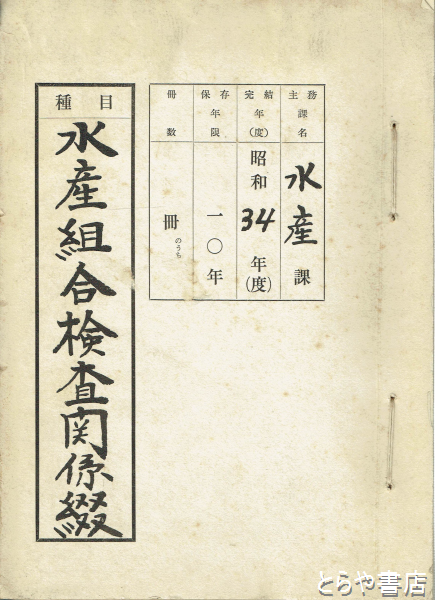 主務課名
水産課
完結年(度)
昭和34年(度)
保存年限
一〇年
冊数
冊のうち
種目
水産組合検査関係綴
とらや書店